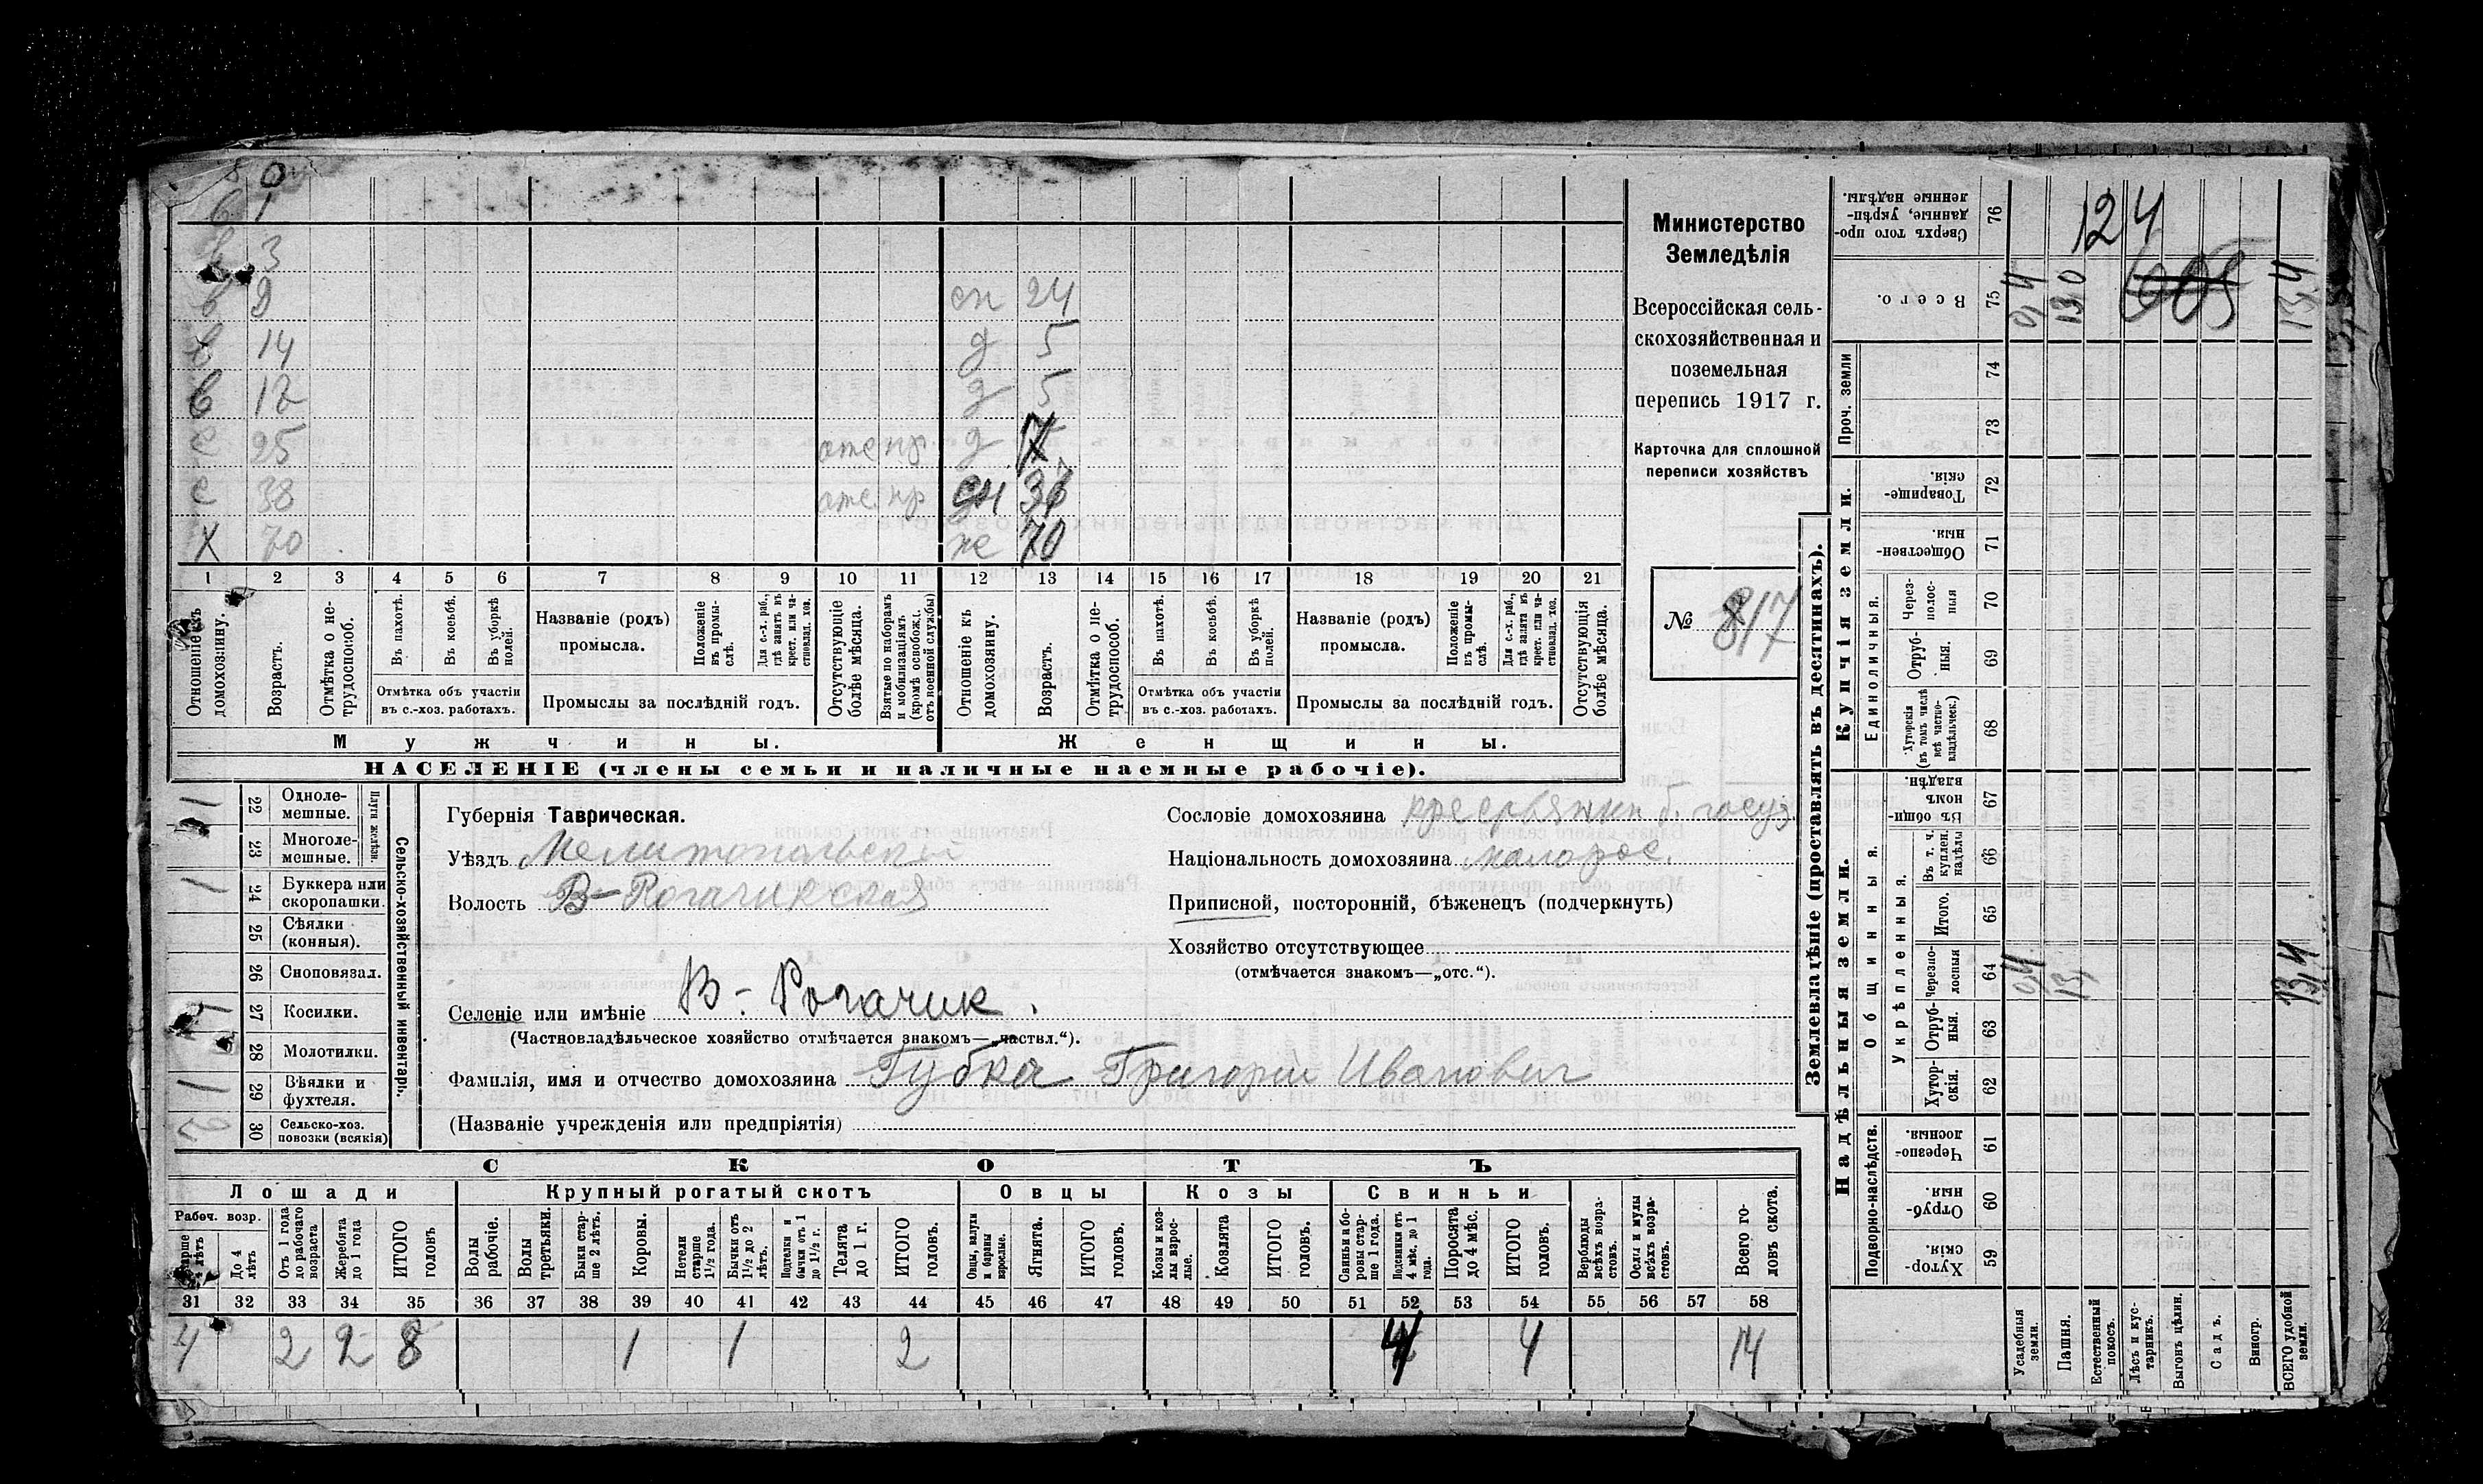 0
6 1
в 3
в 9 сн 24
в 14 д 5
в 17 д 5
с 25 отс пр д
с 38 отс. пр сн
Х 70 же 70
1 2 3 4 5 6 7 8 9 10 11 12 13 14 15 16 17 18 19 20 21
Отношеніе къ домохозяину.
Возрастъ.
Отмѣтка о нетрудоспособ.
Въ пахотѣ.
Въ косьбѣ.
Въ уборкѣ полей.
Отмѣтка объ участіи
въ с.-хоз. работахъ.
Названіе (родъ)
промысла.
Положеніе въ промыслѣ.
Для с.-х. раб., гдѣ занятъ въ крест. или частновлад. хоз.
Промыслы за послѣдній годъ.
Отсутствующіе болѣе мѣсяца.
Взятые по наборамъ и мобилизаціямъ (кромѣ освобожд. отъ военной службы)
Отношеніе къ домохозяину.
Возрастъ.
Отмѣтка о нетрудоспособ.
Въ пахотѣ.
Въ косьбѣ.
Въ уборкѣ полей.
Отмѣтка объ участіи
въ с.-хоз. работахъ.
Названіе (родъ)
промысла.
Положеніе въ промыслѣ.
Для с.-х. раб., гдѣ занята въ крест. или частновлад. хоз.
Промыслы за послѣдній годъ.
Отсутствующія болѣе мѣсяца.
Мужчины. Женщины.
НАСЕЛЕНІЕ (члены семьи и наличные наемные рабочіе).
Министерство
Земледѣлія
Всероссійская сель-
скохозяйственная и
поземельная
перепись 1917 г.
Карточка для сплошной
переписи хозяйствъ
№ 817
Сельско-хозяйственный инвентарь.
Плуги желѣзн.
1 22 Одноле-
мешные.
23 Многоле-
мешные.
1 24 Буккера или
скоропашки.
25 Сѣялки
(конныя).
26 Сноповязал.
1 27 Косилки.
28 Молотилки.
1 29 Вѣялки и
фухтеля.
2 30 Сельско-хоз.
повозки (всякія)
Губернія Таврическая.
Уѣздъ Мелитопольскій
Волость В-Рогачикская
Селеніе или имѣніе В.- Рогачик.
(Частновладѣльческое хозяйство отмѣчается знакомъ—„частвл.“).
Фамилія, имя и отчество домохозяина Губка Григорій Иванович
(Названіе учрежденія или предпріятія)
Сословіе домохозяина крестьянин б. госуд
Національность домохозяина малорос.
Приписной, посторонній, бѣженецъ (подчеркнуть)
Хозяйство отсутствующее
(отмѣчается знакомъ—„отс.“).
СКОТЪ
Лошади Крупный рогатый скотъ Овцы Козы Свиньи
Рабоч. возр.
Старше 4 лѣтъ
До 4 лѣтъ
Отъ 1 года до рабочаго возраста
Жеребята до 1 года
ИТОГО головъ
Волы рабочіе.
Волы третьяки.
Быки старше 2 лѣтъ.
Коровы.
Нетели старше 1½ года.
Бычки отъ 1½ до 2 лѣтъ.
Подтелки и бычки отъ 1 до 1½ г.
Телята до 1 г.
ИТОГО головъ.
Овцы, валухи и бараны взрослые.
Ягнята.
ИТОГО головъ.
Козы и козлы взрослые.
Козлята
ИТОГО головъ.
Свиньи и боровы старше 1 года.
Подсвинки отъ 4 мѣс. до 1 года.
Поросята до 4 мѣс.
ИТОГО головъ.
Верблюды всѣхъ возрастовъ.
Ослы и мулы всѣхъ возрастовъ.
Всего головъ скота.
31 32 33 34 35 36 37 38 39 40 41 42 43 44 45 46 47 48 49 50 51 52 53 54 55 56 57 58
4 2 2 8 1 1 2 4 4 14
Землевладѣніе (проставлять въ десятинахъ).
Надѣльныя земли. Купчія земли.
Проч. земли
Подворно-наслѣдств.
Общинныя.
Укрѣпленныя.
Единоличныя.
Сверхъ того проданные, укрѣпленные надѣлы. 76 124
Всего. 75 0,4 130 134
74
73
Товарищескія. 72
Общественныя. 71
Черезполосныя 70
Отрубныя. 69
Хуторскія (въ томъ числѣ всѣ частновладѣльческ.) 68
Въ общинномъ владѣн. 67
Въ т. ч. куплен. надѣлы 66
Итого. 65
Черезполосныя 64 0,4 13, 13,4
Отрубныя. 63
Хуторскія. 62
Черезполосныя. 61
Отрубныя. 60
Хуторскія. 59
Усадебныя земли.
Пашня.
Естественный покосъ.
Лѣсъ и кустарникъ.
Выгонъ цѣлин.
Садъ.
Виногр.
ВСЕГО удобной земли.